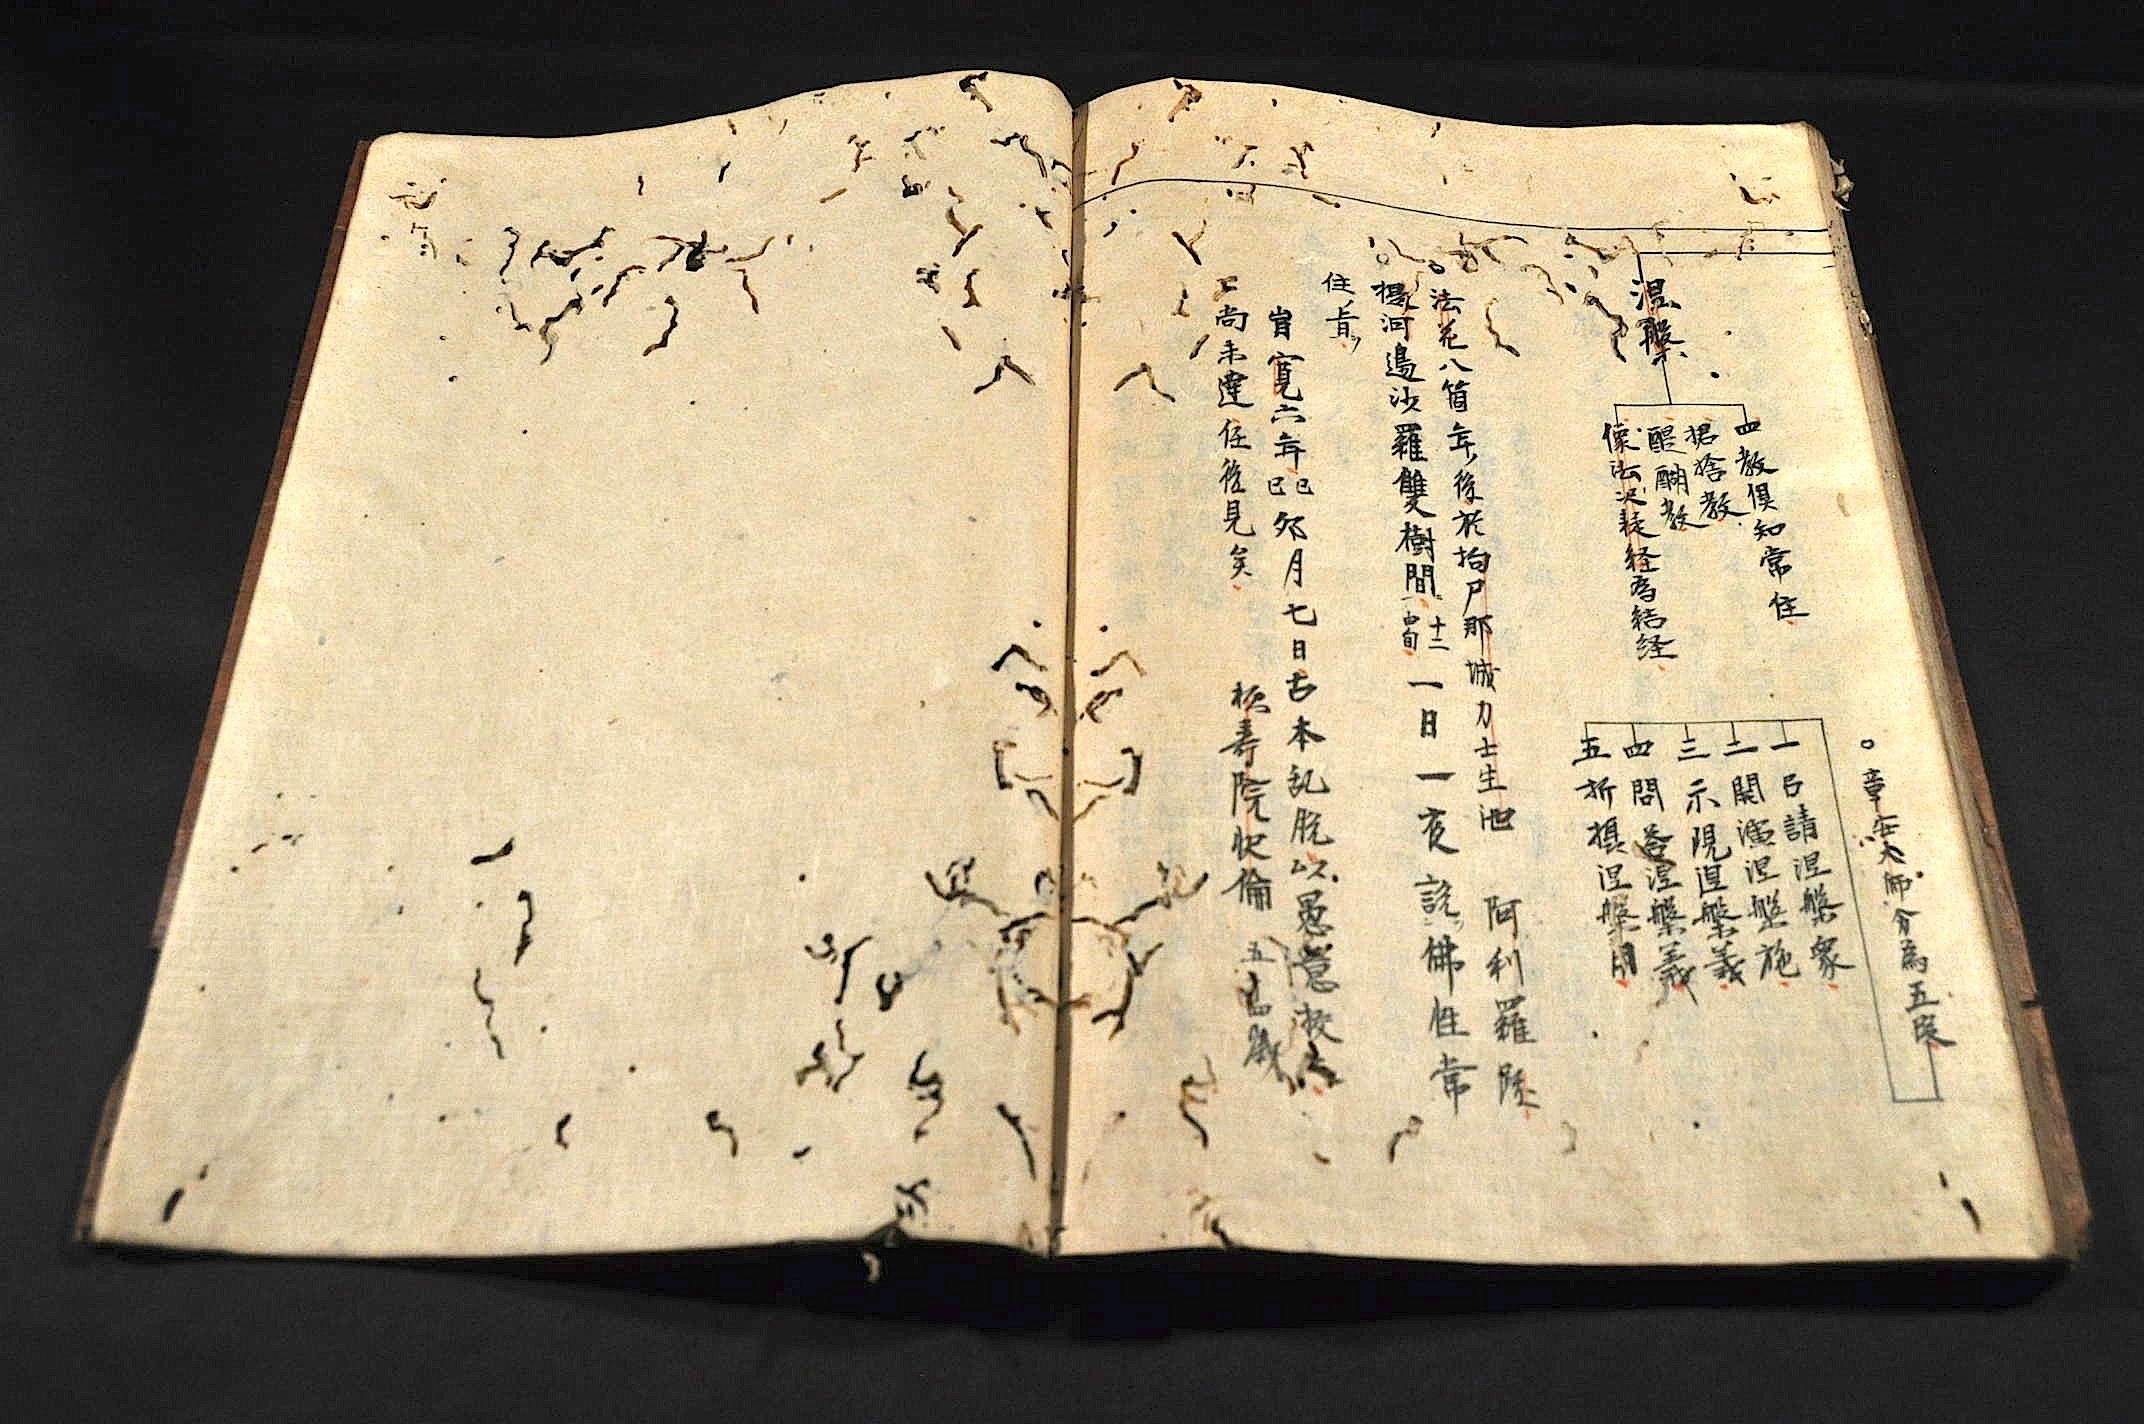 涅槃
四教俱知常住
捃捨教
醍醐教
像法決疑経為結経
○章安大師分為五段
一 召請涅槃衆
二 開演涅槃施
三 示現涅槃義
四 問答涅槃義
五 折摂涅槃用
○法花八箇年後於拘尸那城力士生地 阿利羅跋
提河邊沙羅雙樹間 十二由旬 一日一夜説佛性常
住旨
旹寛六年己巳卯月七日古本乱脱以愚意改
尚未達任後見矣
極壽院快倫 五